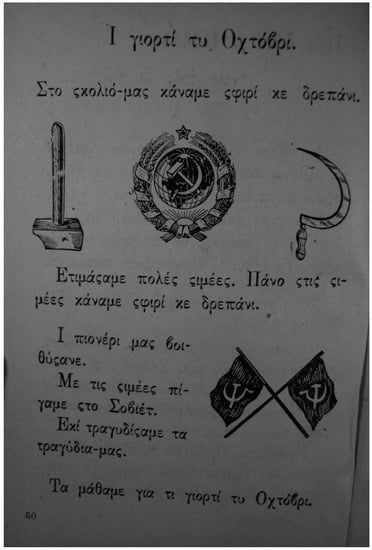 Ι γιορτί τυ Οχτόβρι.
Στο ςκολιό-μας κάναμε ςφιρί κε δρεπάνι.
Ετιμάςαμε πολές ςιμέες. Πάνο ςτις ςι-
μέες κάναμε ςφιρί κε δρεπάνι.
Ι πιονέρι μας βοι-
θύςανε.
Με τις ςιμέες πί-
γαμε ςτο Σοβιέτ.
Εκί τραγυδίςαμε τα
τραγύδια-μας.
Τα μάθαμε για τι γιορτί τυ Οχτόβρι.
50